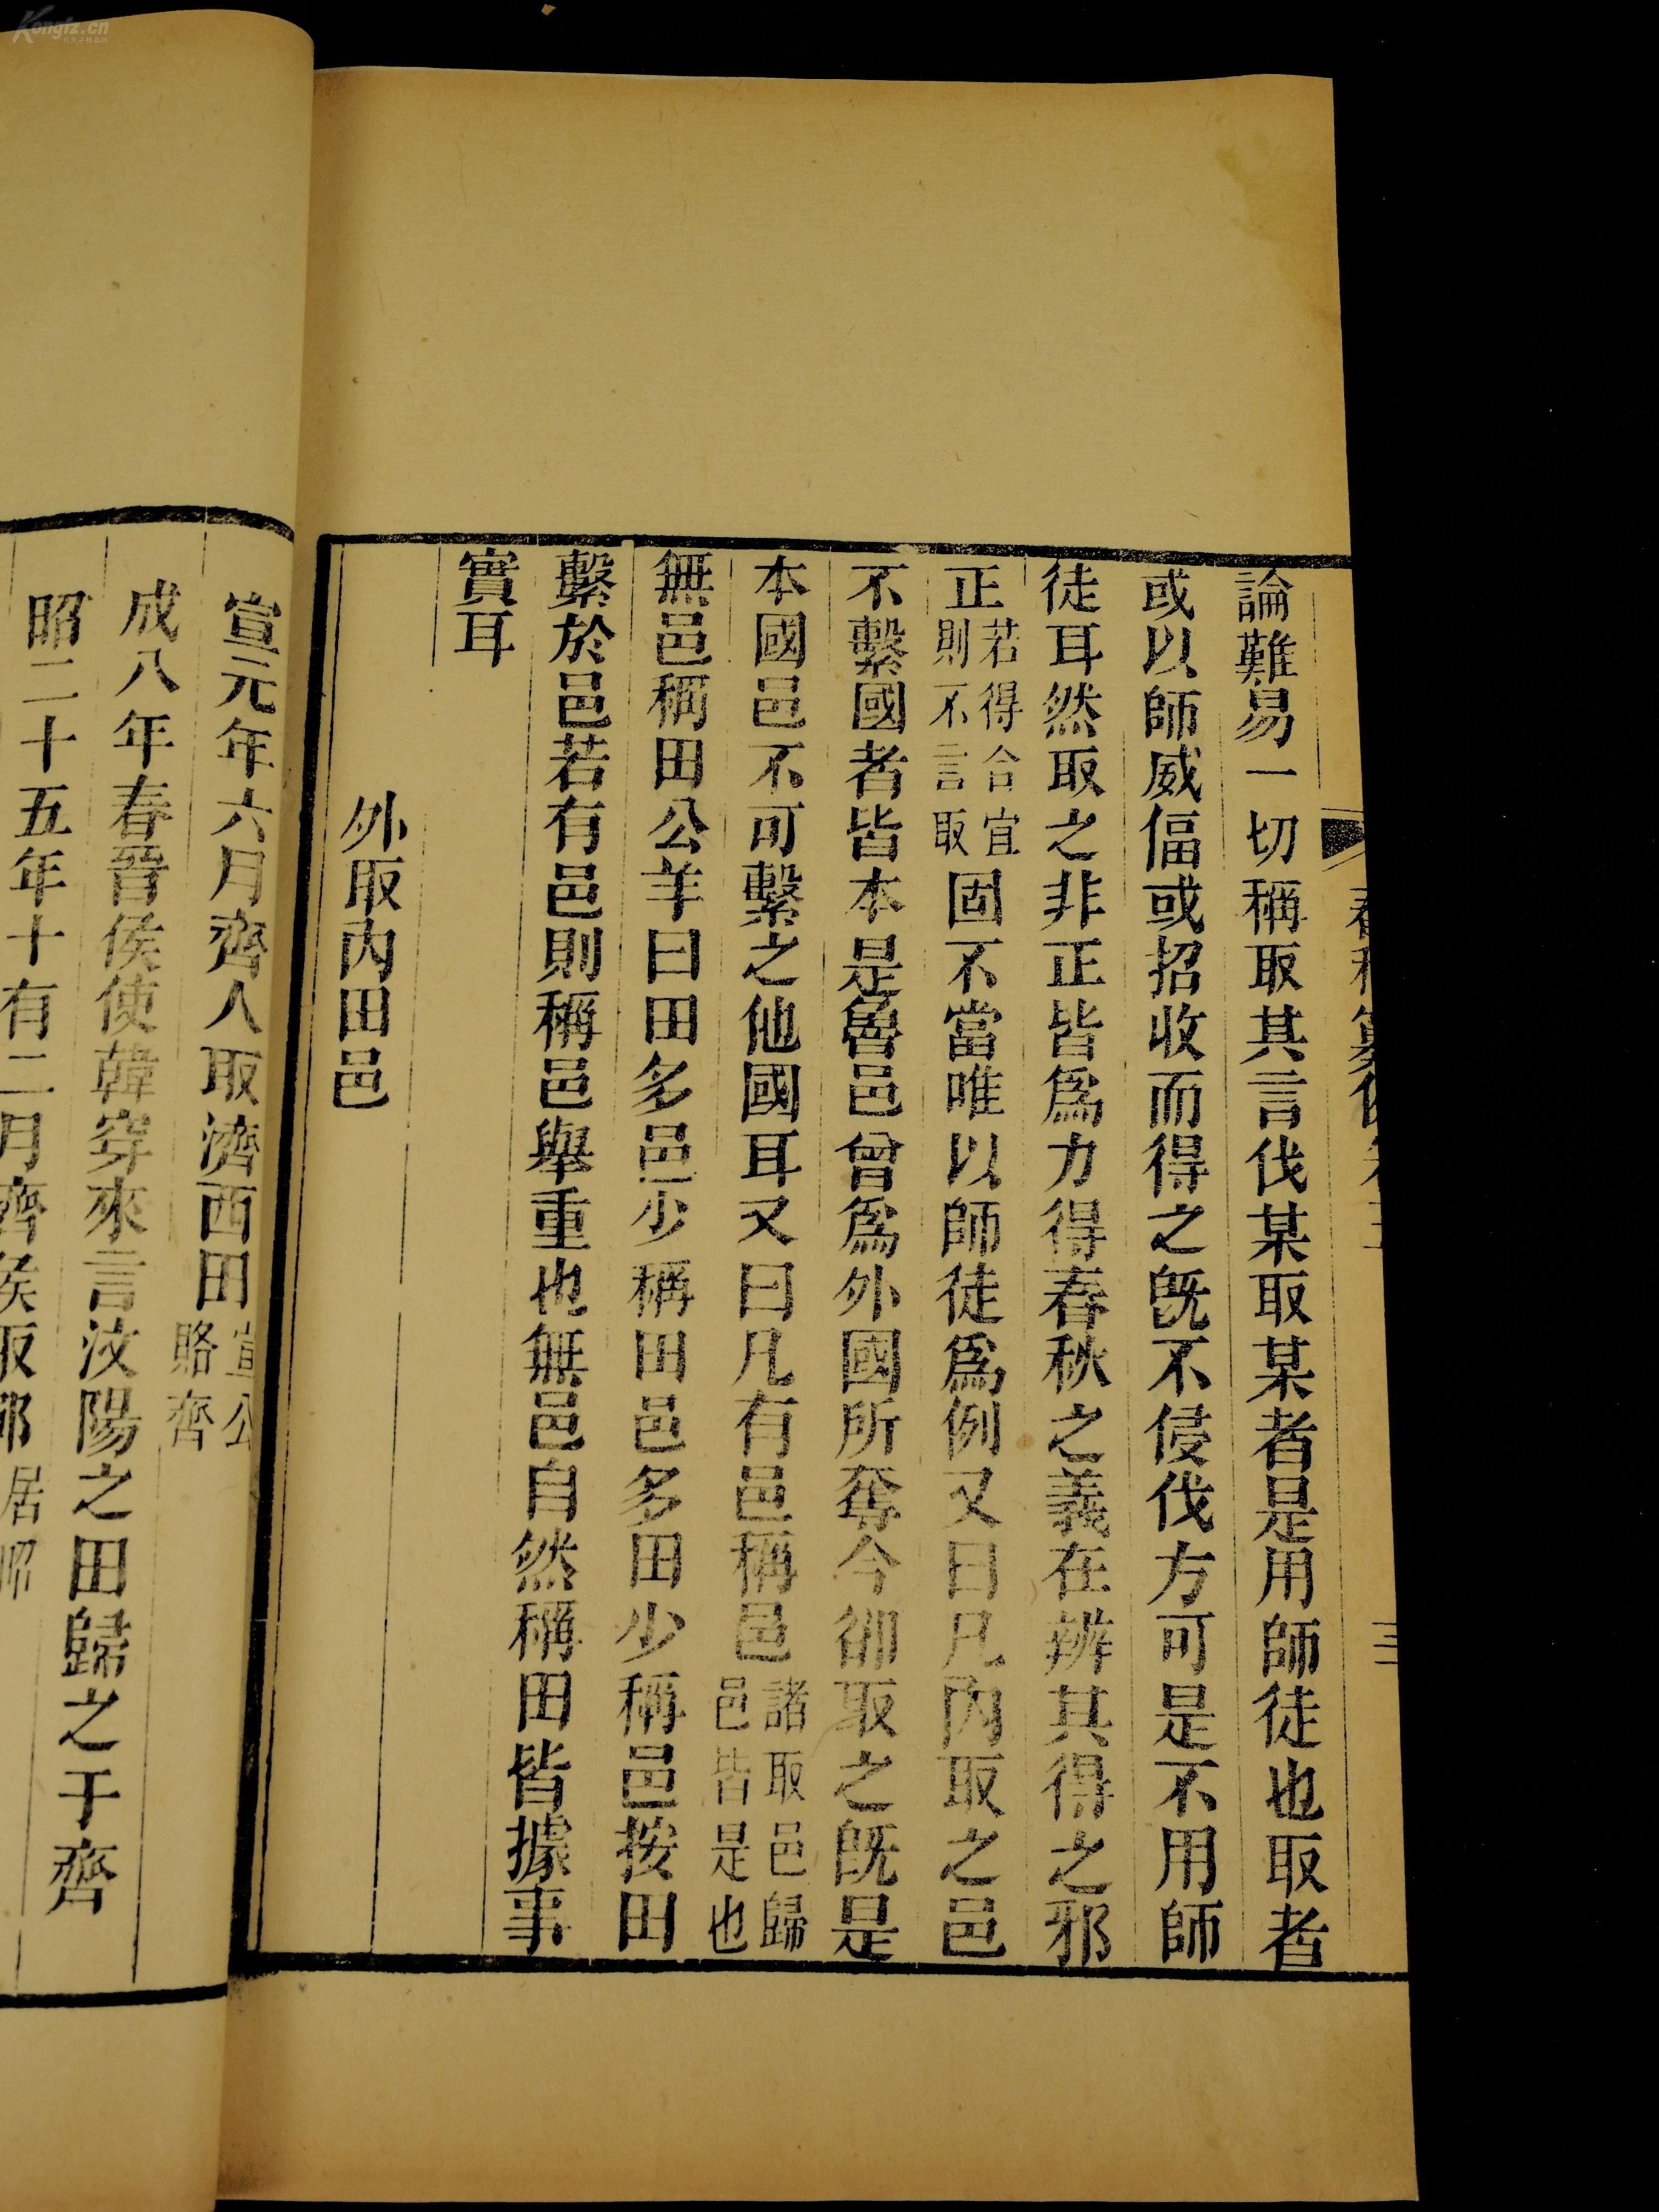 論難易一切稱取其言伐某取某者是用師徒也取者
或以師威偪或招收而得之旣不侵伐方可是不用師
徒耳然取之非正皆爲力得春秋之義在辨其得之邪
正若得合宜則不言取固不當唯以師徒爲例又曰凡內取之邑
不繫國者皆本是魯邑曾爲外國所奪今卻取之旣是
本國邑不可繫之他國耳又曰凡有邑稱邑諸取邑歸邑皆是也
無邑稱田公羊曰田多邑少稱田邑多田少稱邑按田
繫於邑若有邑則稱邑舉重也無邑自然稱田皆據事
實耳
外取內田邑
宣元年六月齊人取濟西田宣公賂齊
成八年春晉侯使韓穿來言汶陽之田歸之于齊
昭二十五年十有二月齊侯取鄆居昭
Kongfz.cn